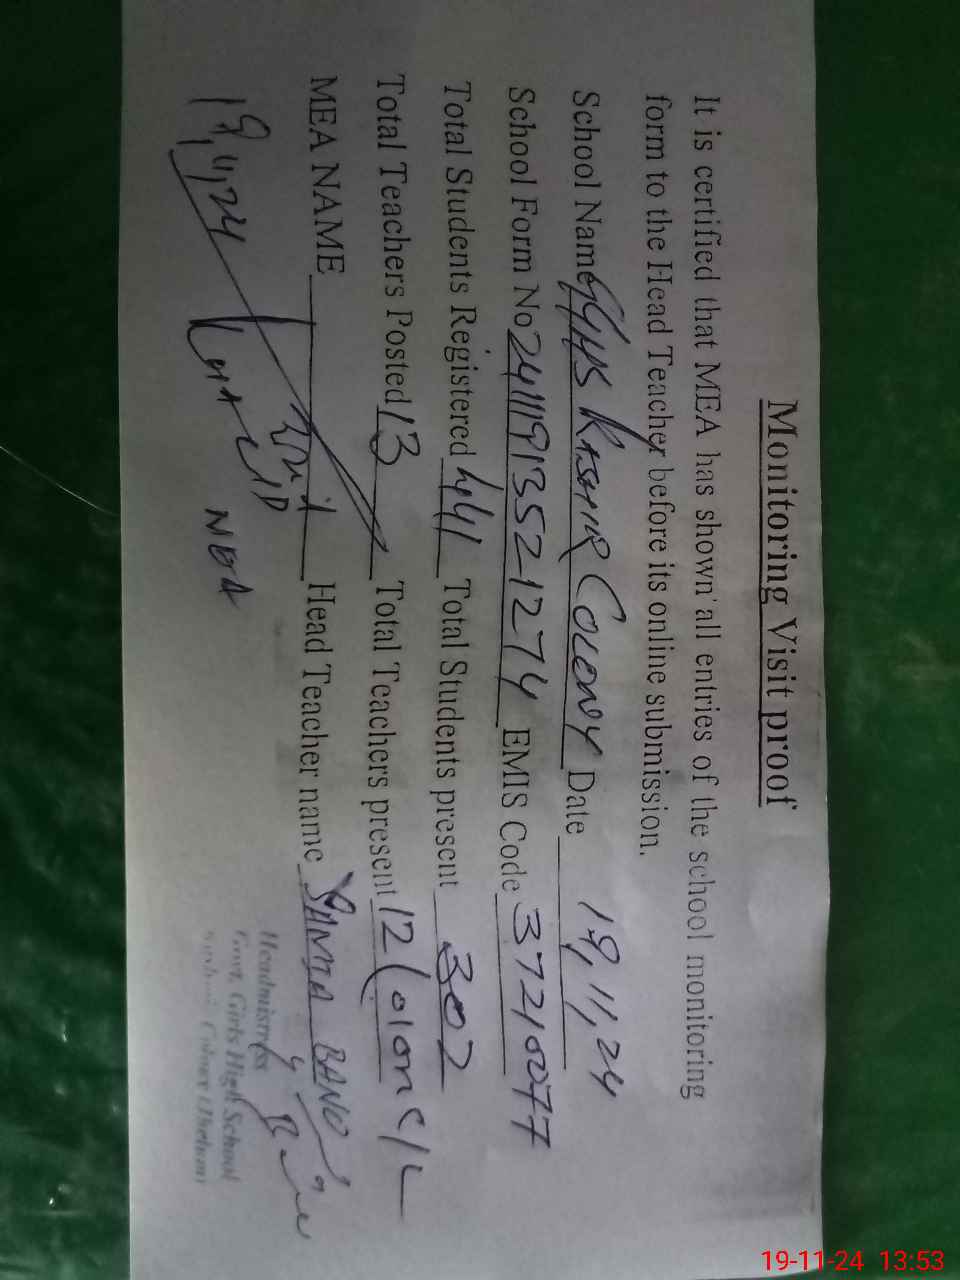 Monitoring Visit proof
It is certified that MEA has shown all entries of the school monitoring
form to the Head Teacher before its online submission.
School Name GGHS KASHIR COLONY Date 19,11,24
School Form No 24111913521274 EMIS Code 37210077
Total Students Registered 441 Total Students present 302
Total Teachers Posted 13 Total Teachers present 12 (01 on C/L
MEA NAME Head Teacher name SAMIA BANO
19,11,24
MEA
Headmistress
Govt. Girls High School
19-11-24 13:53